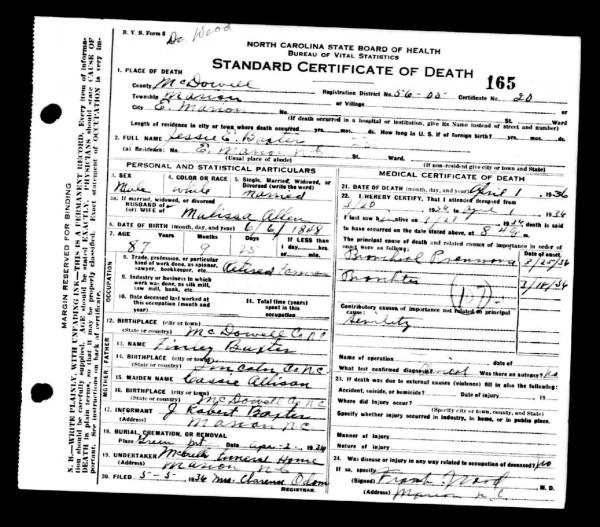 R. V. S. Form 8
Dr Wood
NORTH CAROLINA STATE BOARD OF HEALTH
BUREAU OF VITAL STATISTICS
STANDARD CERTIFICATE OF DEATH 165
1. PLACE OF DEATH
County McDowell Registration District No. 56-05 Certificate No. 20
Township Marion or Village
City E. Marion No. St. Ward
(If death occurred in a hospital or institution, give its Name instead of street and number)
Length of residence in city or town where death occurred yrs. mos. ds. How long in U. S. if of foreign birth? yrs. mos. ds.
2. FULL NAME Jessie C. Baxter
(a) Residence: No. E. Marion N.C. St. Ward.
(Usual place of abode) (If non-resident give city or town and State)
PERSONAL AND STATISTICAL PARTICULARS
3. SEX 4. COLOR OR RACE 5. Single, Married, Widowed, or Divorced (write the word)
Male White Married
5a. If married, widowed, or divorced
HUSBAND of
(or) WIFE of Malissa Allen
6. DATE OF BIRTH (month, day, and year) 6/6/1848
7. AGE Years Months Days If LESS than
87 9 25 1 day, hrs.
or min.
OCCUPATION
8. Trade, profession, or particular
kind of work done, as spinner,
sawyer, bookkeeper, etc. Retired Farmer
9. Industry or business in which
work was done, as silk mill,
saw mill, bank, etc.
10. Date deceased last worked at
this occupation (month and
year)
11. Total time (years)
spent in this
occupation
12. BIRTHPLACE (city or town)
(State or country) McDowell Co N.C.
MOTHER FATHER
13. NAME Finley Baxter
14. BIRTHPLACE (city or town)
(State or country) Lincoln Co N.C.
15. MAIDEN NAME Cassie Allison
16. BIRTHPLACE (city or town)
(State or country) McDowell Co N.C.
17. INFORMANT J Robert Baxter
(Address) Marion N.C.
18. BURIAL, CREMATION, OR REMOVAL
Place Date Apr. 2, 1936
19. UNDERTAKER Funeral Home
(Address) Marion N.C.
20. FILED 5-5- 1936 Mrs. Clarence Odom
REGISTRAR.
MEDICAL CERTIFICATE OF DEATH
21. DATE OF DEATH (month, day, and year) April 1, 1936
22. I HEREBY CERTIFY, That I attended deceased from
1936 to April 1 1936
I last saw alive on 1936 death is said
to have occurred on the date stated above, at m.
The principal cause of death and related causes of importance in order of
onset were as follows: Date of onset
Bronchial Pneumonia 3/25/36
Bronchitis 3/18/36
(107)
Contributory causes of importance not related to principal
cause:
Senility
Name of operation
What test confirmed diagnosis? Was there an autopsy? No
23. If death was due to external causes (violence) fill in also the following:
Accident, suicide, or homicide? Date of injury 19
Where did injury occur?
(Specify city or town, county, and State)
Specify whether injury occurred in industry, in home, or in public place.
Manner of injury
Nature of injury
24. Was disease or injury in any way related to occupation of deceased? No
If so, specify
(Signed) Frank Wood M. D.
(Address) Marion N.C.
MARGIN RESERVED FOR BINDING
N. B.—WRITE PLAINLY, WITH UNFADING INK—THIS IS A PERMANENT RECORD. Every item of information
should be carefully supplied. AGE should be stated EXACTLY. PHYSICIANS should state CAUSE OF
DEATH in plain terms, so that it may be properly classified. Exact statement of OCCUPATION is very important.
See instructions on back of certificate.